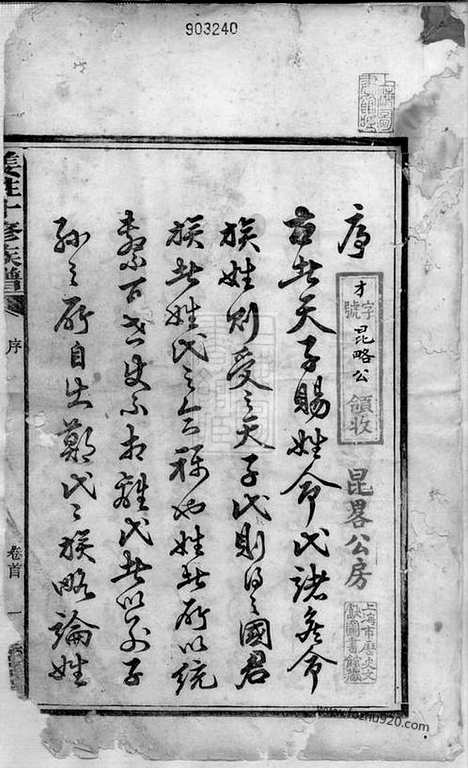 903240
上海圖書館藏
序
才字號 昆略公 領收
昆畧公房
上海市歷史文獻圖書館藏
古者天子賜姓命氏諸侯命
族姓則受之天子氏則得之國君
族者姓氏之合稱也姓者所以統
繫百世使不相離氏者以別子
孫之所自出鄭氏氏族略論姓
姜姓十修族譜
序
卷首
一
www.fozhu920.com